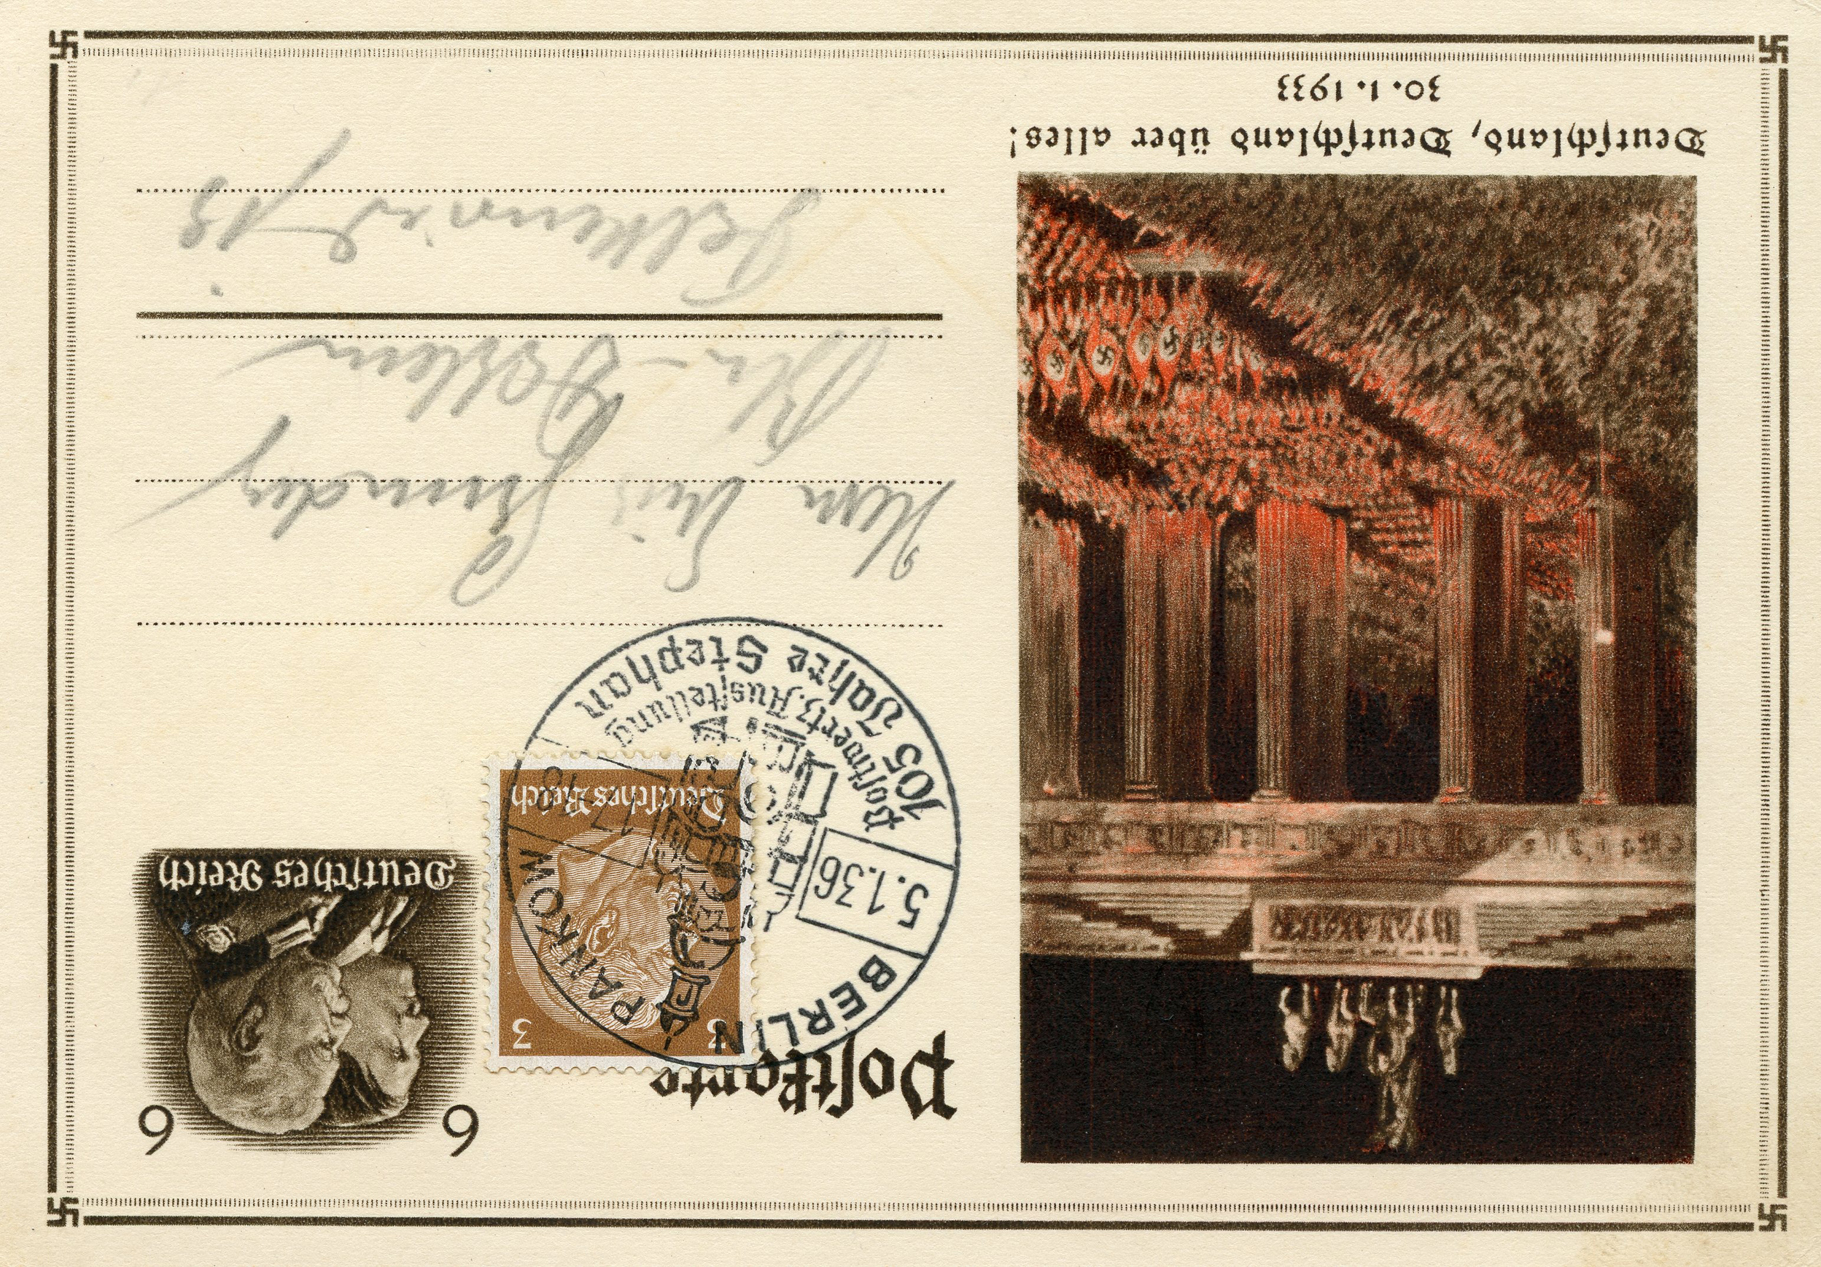 Postkarte
6 6
Deutsches Reich
3 3
Deutsches Reich
BERLIN PANKOW
5.1.36
17-18
105 Jahre Stephan
Postwertz. Ausstellung
Herrn
Bln-
13
Deutschland, Deutschland über alles!
30. 1. 1933